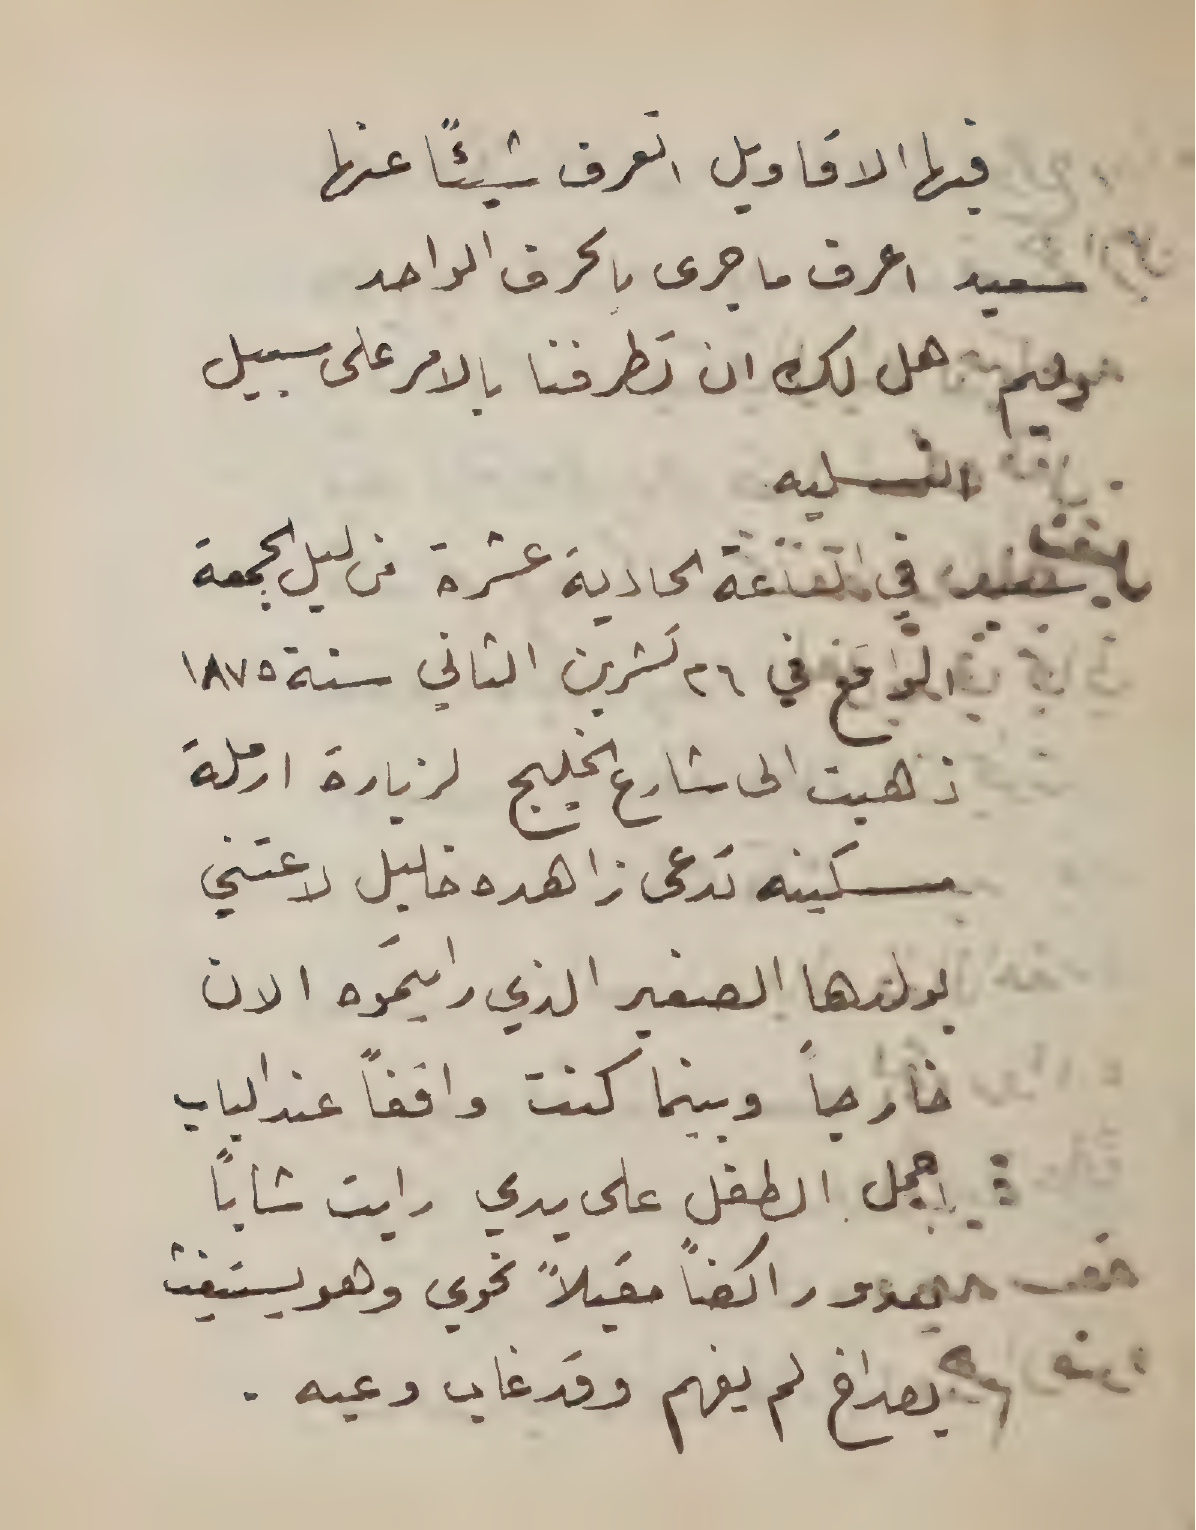 فيها الاقاويل اتعرف شيئًا عنها
سعيد اعرف ما جرى بالحرف الواحد
هل لك ان تطرفنا بالامر على سبيل
التسليه
سعيد في الحادية عشرة من ليل الجمعة
الواقع في ٢٦ تشرين الثاني سنة ١٨٧٥
ذهبت الى شارع الخليج لزيارة ارملة
مسكينه تدعى زاهده خليل لاعتني
بولدها الصغير الذي رايتموه الان
خارجاً وبينما كنت واقفاً عند الباب
احمل الطفل على يدي رايت شابًا
راكضاً مقبلاً نحوي وهو يستغيث
بصراخ لم يفهم وقد غاب وعيه .